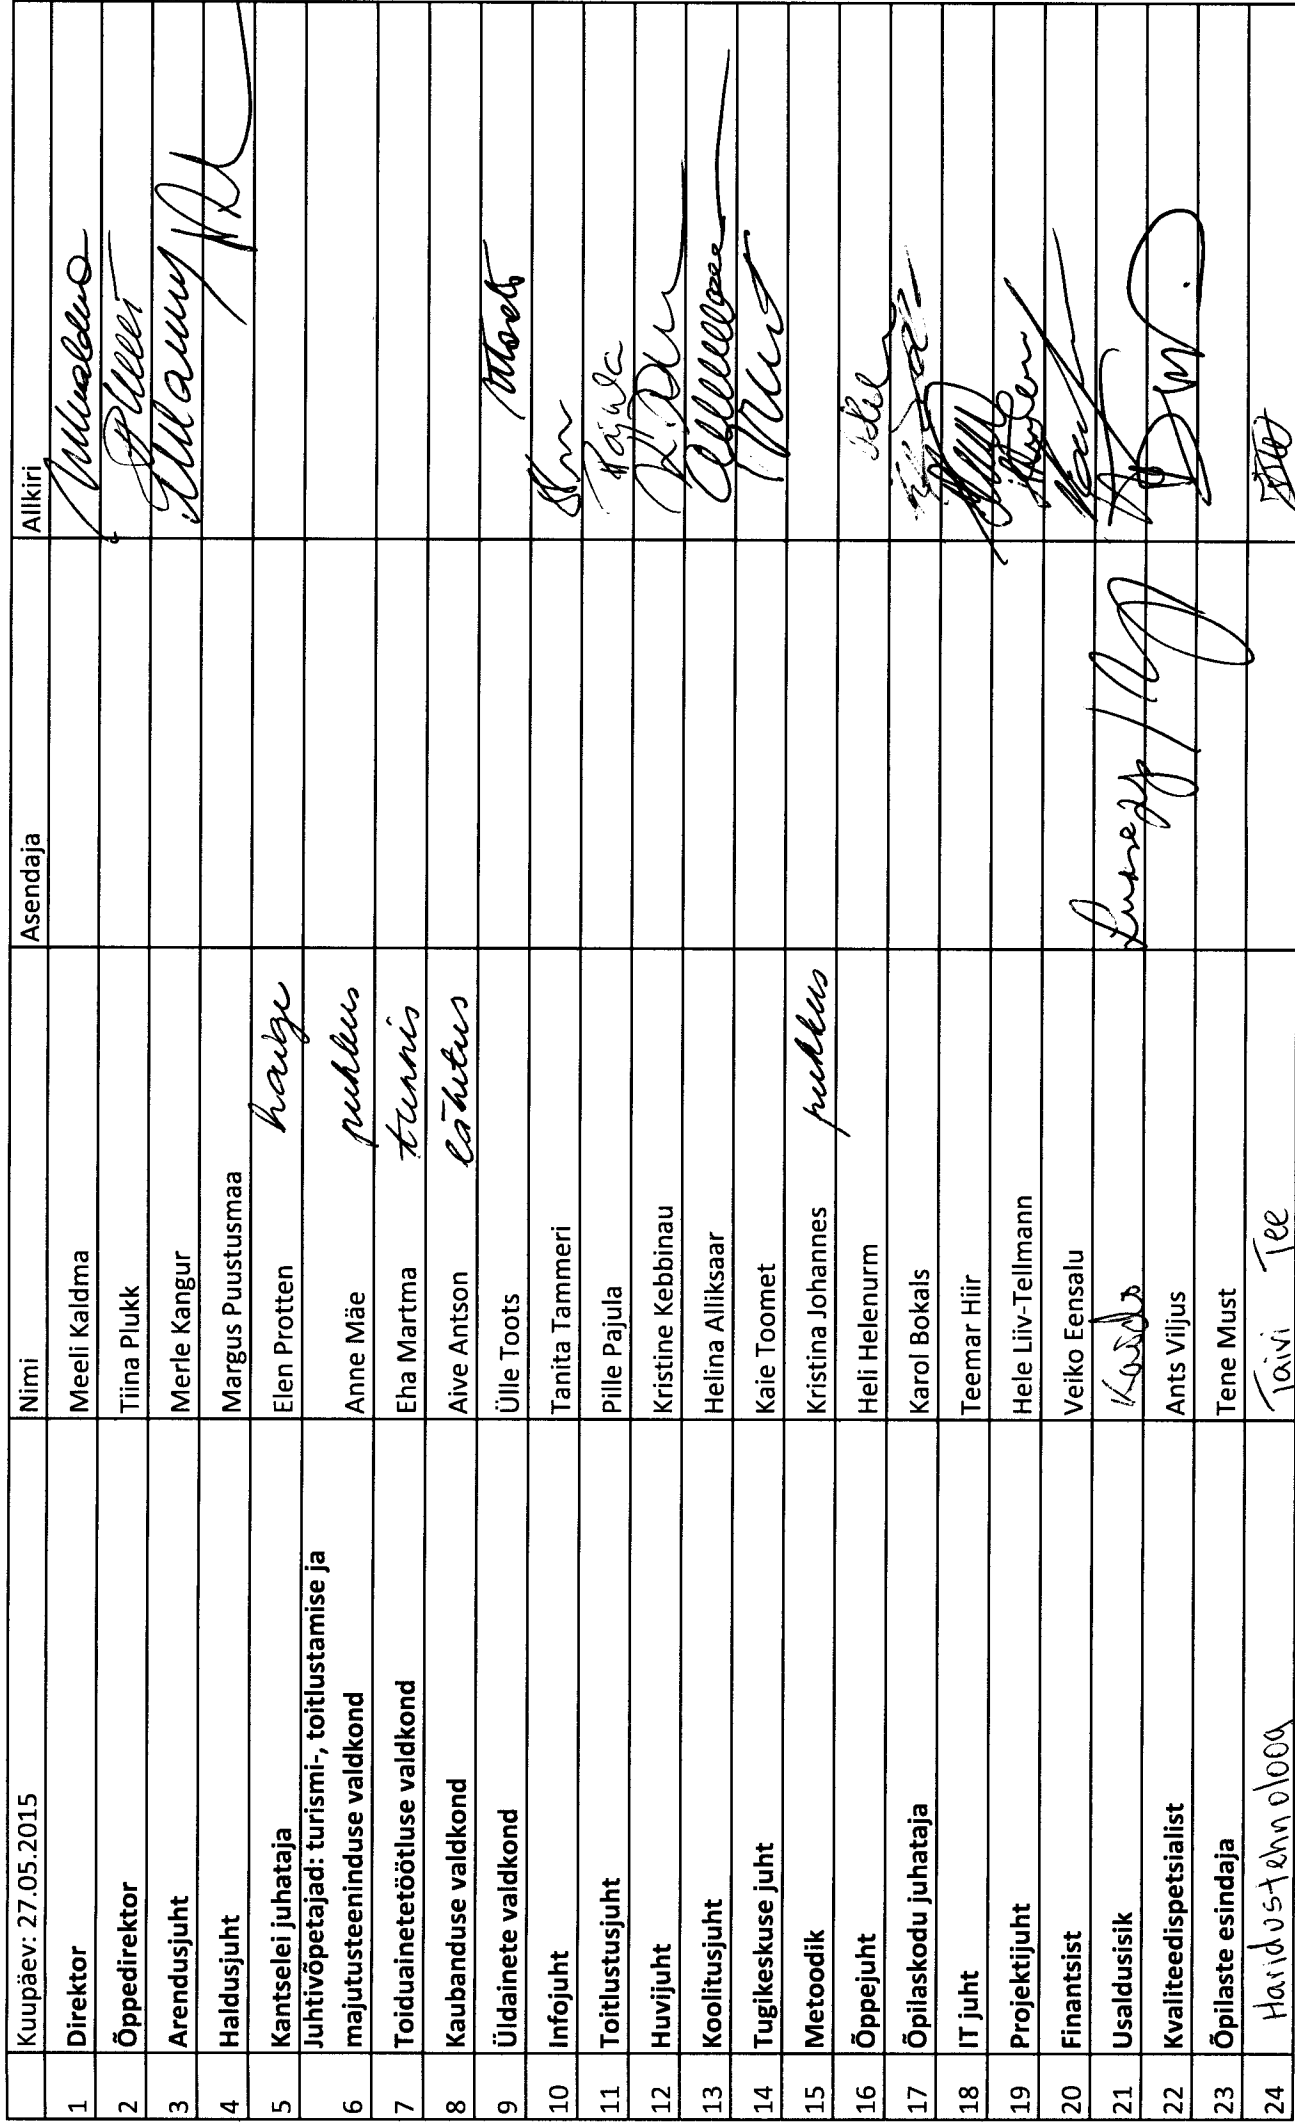 Kuupäev: 27.05.2015 Nimi Asendaja Allkiri
1 Direktor Meeli Kaldma
2 Õppedirektor Tiina Plukk
3 Arendusjuht Merle Kangur
4 Haldusjuht Margus Puustusmaa
5 Kantselei juhataja Elen Protten haige
Juhtivõpetajad: turismi-, toitlustamise ja
6 majutusteeninduse valdkond Anne Mäe puhkus
7 Toiduainetetöötluse valdkond Eha Martma tunnis
8 Kaubanduse valdkond Aive Antson lähetus
9 Üldainete valdkond Ülle Toots
10 Infojuht Tanita Tammeri
11 Toitlustusjuht Pille Pajula Pajula
12 Huvijuht Kristine Kebbinau
13 Koolitusjuht Helina Alliksaar
14 Tugikeskuse juht Kaie Toomet
15 Metoodik Kristina Johannes puhkus
16 Õppejuht Heli Helenurm
17 Õpilaskodu juhataja Karol Bokals
18 IT juht Teemar Hiir
19 Projektijuht Hele Liiv-Tellmann
20 Finantsist Veiko Eensalu
21 Usaldusisik Kaido
22 Kvaliteedispetsialist Ants Viljus
23 Õpilaste esindaja Tene Must
24 Haridustehnoloog Taivi Tee